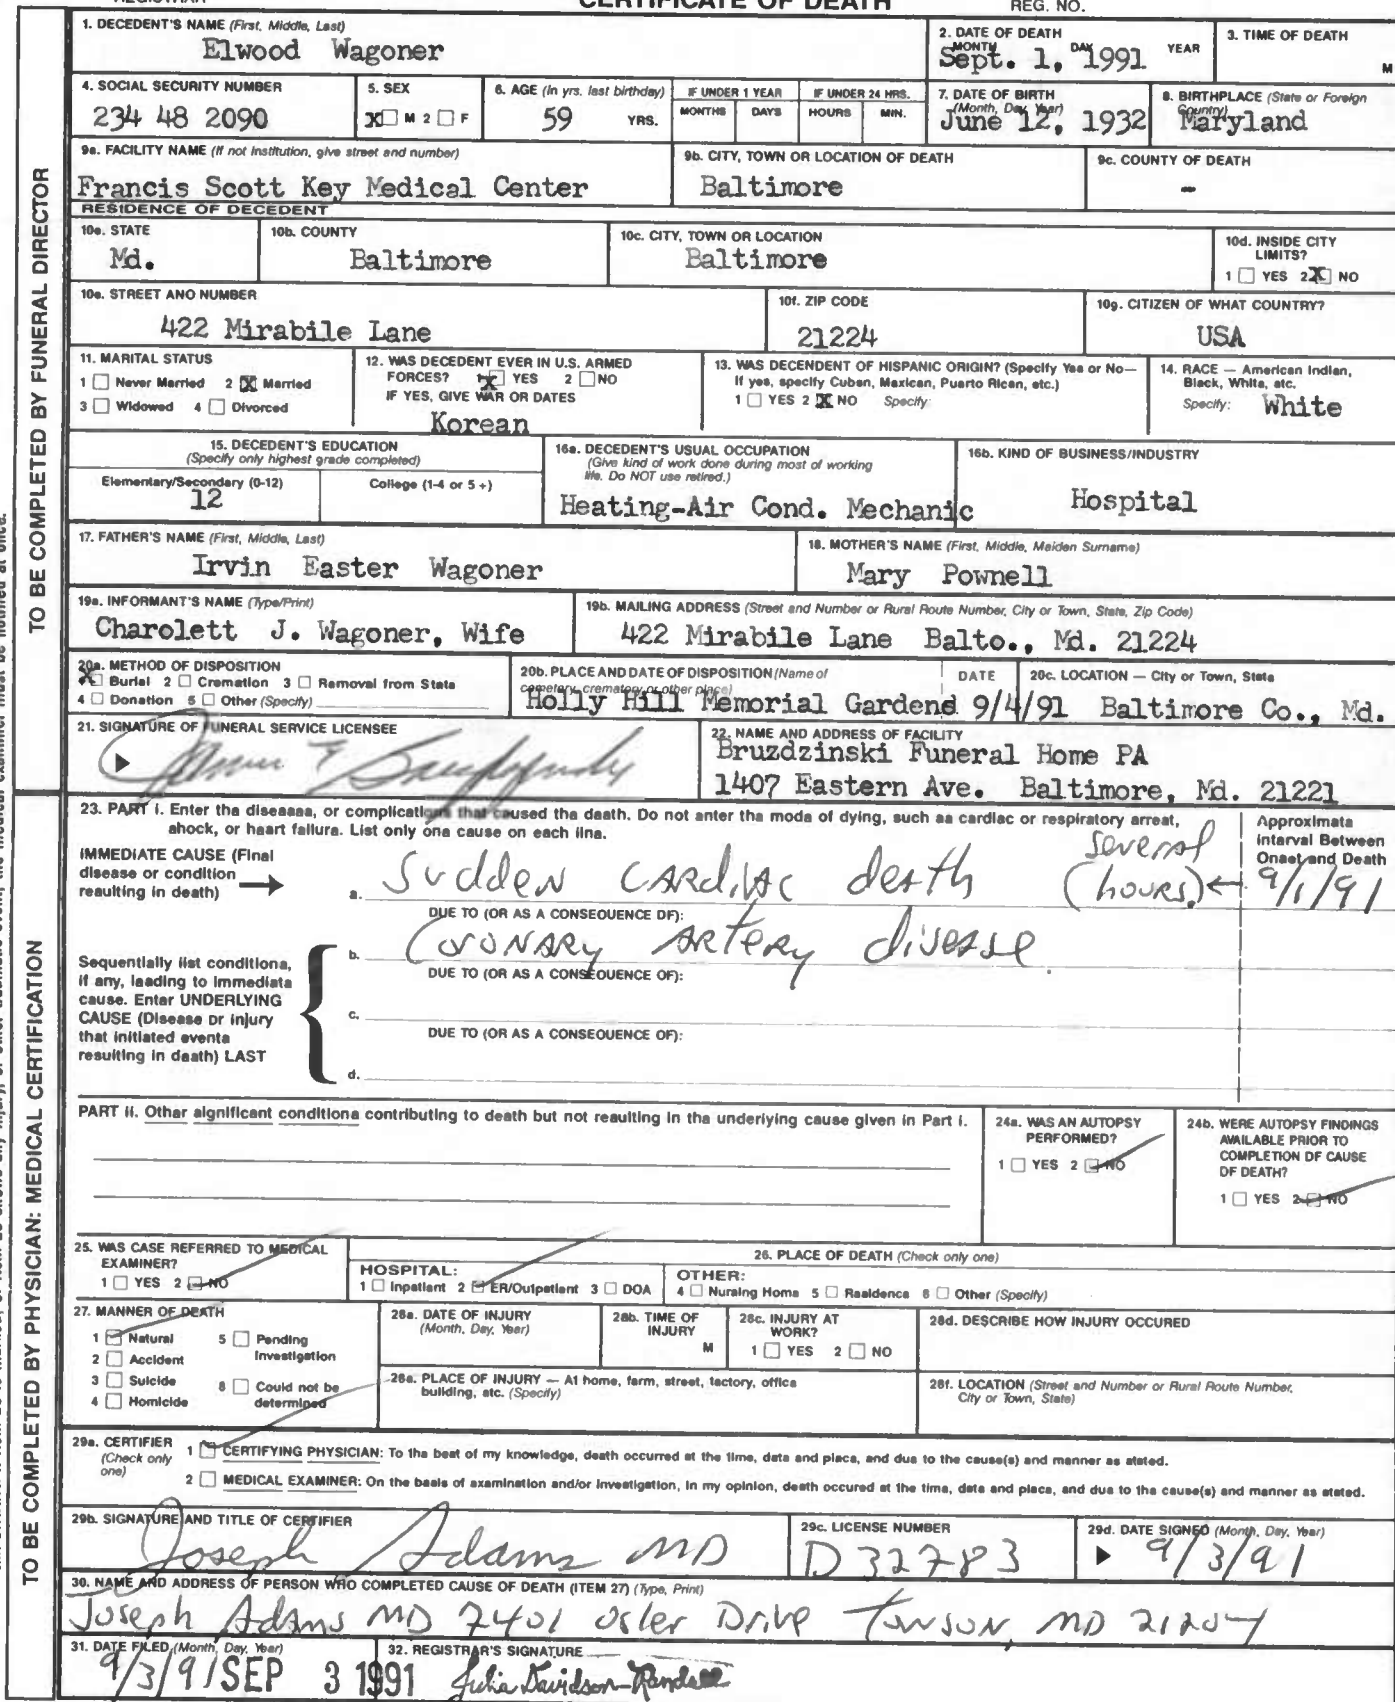 REGISTRAR
CERTIFICATE OF DEATH
REG. NO.
1. DECEDENT'S NAME (First, Middle, Last)
Elwood Wagoner
2. DATE OF DEATH
MONTH DAY YEAR
Sept. 1, 1991
3. TIME OF DEATH
M
4. SOCIAL SECURITY NUMBER
234 48 2090
5. SEX
X M 2 F
6. AGE (In yrs. last birthday)
59 YRS.
IF UNDER 1 YEAR
MONTHS DAYS
IF UNDER 24 HRS.
HOURS MIN.
7. DATE OF BIRTH
(Month, Day, Year)
June 12, 1932
8. BIRTHPLACE (State or Foreign
Country)
Maryland
9a. FACILITY NAME (If not institution, give street and number)
Francis Scott Key Medical Center
9b. CITY, TOWN OR LOCATION OF DEATH
Baltimore
9c. COUNTY OF DEATH
-
RESIDENCE OF DECEDENT
10a. STATE
Md.
10b. COUNTY
Baltimore
10c. CITY, TOWN OR LOCATION
Baltimore
10d. INSIDE CITY
LIMITS?
1 YES 2 X NO
10e. STREET AND NUMBER
422 Mirabile Lane
10f. ZIP CODE
21224
10g. CITIZEN OF WHAT COUNTRY?
USA
11. MARITAL STATUS
1 Never Married 2 X Married
3 Widowed 4 Divorced
12. WAS DECEDENT EVER IN U.S. ARMED
FORCES? 1 X YES 2 NO
IF YES, GIVE WAR OR DATES
Korean
13. WAS DECENDENT OF HISPANIC ORIGIN? (Specify Yes or No—
If yes, specify Cuban, Mexican, Puerto Rican, etc.)
1 YES 2 X NO Specify:
14. RACE — American Indian,
Black, White, etc.
Specify: White
15. DECEDENT'S EDUCATION
(Specify only highest grade completed)
Elementary/Secondary (0-12)
12
College (1-4 or 5 +)
16a. DECEDENT'S USUAL OCCUPATION
(Give kind of work done during most of working
life. Do NOT use retired.)
Heating-Air Cond. Mechanic
16b. KIND OF BUSINESS/INDUSTRY
Hospital
17. FATHER'S NAME (First, Middle, Last)
Irvin Easter Wagoner
18. MOTHER'S NAME (First, Middle, Maiden Surname)
Mary Pownell
19a. INFORMANT'S NAME (Type/Print)
Charolett J. Wagoner, Wife
19b. MAILING ADDRESS (Street and Number or Rural Route Number, City or Town, State, Zip Code)
422 Mirabile Lane Balto., Md. 21224
20a. METHOD OF DISPOSITION
X Burial 2 Cremation 3 Removal from State
4 Donation 5 Other (Specify)
20b. PLACE AND DATE OF DISPOSITION (Name of
cemetery, crematory or other place)
DATE
Holly Hill Memorial Gardend 9/4/91
20c. LOCATION — City or Town, State
Baltimore Co., Md.
21. SIGNATURE OF FUNERAL SERVICE LICENSEE
22. NAME AND ADDRESS OF FACILITY
Bruzdzinski Funeral Home PA
1407 Eastern Ave. Baltimore, Md. 21221
TO BE COMPLETED BY FUNERAL DIRECTOR
23. PART I. Enter the diseases, or complications that caused the death. Do not enter the mode of dying, such as cardiac or respiratory arrest,
shock, or heart failure. List only one cause on each line.
Approximate
Interval Between
Onset and Death
IMMEDIATE CAUSE (Final
disease or condition
resulting in death)
a. Sudden cardiac death several (hours) ← 9/1/91
DUE TO (OR AS A CONSEQUENCE OF):
b. Coronary artery disease
DUE TO (OR AS A CONSEQUENCE OF):
c.
DUE TO (OR AS A CONSEQUENCE OF):
d.
Sequentially list conditions,
if any, leading to immediate
cause. Enter UNDERLYING
CAUSE (Disease or injury
that initiated events
resulting in death) LAST
PART II. Other significant conditions contributing to death but not resulting in the underlying cause given in Part I.
24a. WAS AN AUTOPSY
PERFORMED?
1 YES 2 NO
24b. WERE AUTOPSY FINDINGS
AVAILABLE PRIOR TO
COMPLETION OF CAUSE
OF DEATH?
1 YES 2 NO
25. WAS CASE REFERRED TO MEDICAL
EXAMINER?
1 YES 2 NO
26. PLACE OF DEATH (Check only one)
HOSPITAL:
1 Inpatient 2 ER/Outpatient 3 DOA
OTHER:
4 Nursing Home 5 Residence 6 Other (Specify)
27. MANNER OF DEATH
1 Natural 5 Pending
Investigation
2 Accident
3 Suicide 6 Could not be
determined
4 Homicide
28a. DATE OF INJURY
(Month, Day, Year)
28b. TIME OF
INJURY
M
28c. INJURY AT
WORK?
1 YES 2 NO
28d. DESCRIBE HOW INJURY OCCURED
28e. PLACE OF INJURY — At home, farm, street, factory, office
building, etc. (Specify)
28f. LOCATION (Street and Number or Rural Route Number,
City or Town, State)
29a. CERTIFIER
(Check only
one)
1 CERTIFYING PHYSICIAN: To the best of my knowledge, death occurred at the time, date and place, and due to the cause(s) and manner as stated.
2 MEDICAL EXAMINER: On the basis of examination and/or investigation, in my opinion, death occured at the time, date and place, and due to the cause(s) and manner as stated.
29b. SIGNATURE AND TITLE OF CERTIFIER
Joseph Adams MD
29c. LICENSE NUMBER
D 32783
29d. DATE SIGNED (Month, Day, Year)
9/3/91
30. NAME AND ADDRESS OF PERSON WHO COMPLETED CAUSE OF DEATH (ITEM 27) (Type, Print)
Joseph Adams MD 7401 Osler Drive Towson, MD 21204
31. DATE FILED (Month, Day, Year)
9/3/91 SEP 3 1991
32. REGISTRAR'S SIGNATURE
Julia Davidson-Randall
TO BE COMPLETED BY PHYSICIAN: MEDICAL CERTIFICATION